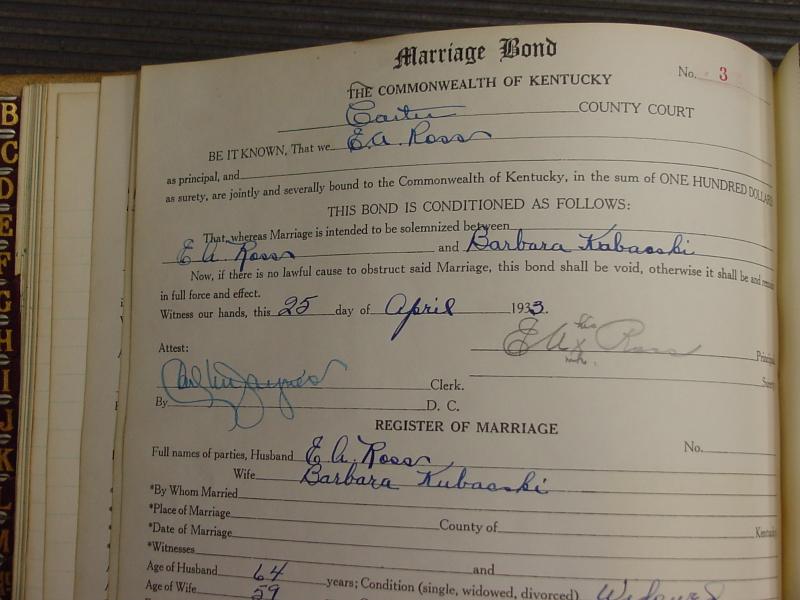 Marriage Bond
No. 3
THE COMMONWEALTH OF KENTUCKY
Carter COUNTY COURT
BE IT KNOWN, That we E. A. Ross
as principal, and
as surety, are jointly and severally bound to the Commonwealth of Kentucky, in the sum of ONE HUNDRED DOLLARS
THIS BOND IS CONDITIONED AS FOLLOWS:
That, whereas Marriage is intended to be solemnized between
E. A. Ross and Barbara Kubacski
Now, if there is no lawful cause to obstruct said Marriage, this bond shall be void, otherwise it shall be and remain
in full force and effect.
Witness our hands, this 25 day of April 1933.
E A his x Ross Principal
mk.
Attest:
Surety
Clerk.
By D. C.
REGISTER OF MARRIAGE
No.
Full names of parties, Husband E. A. Ross
Wife Barbara Kubacski
*By Whom Married
*Place of Marriage County of Kentucky
*Date of Marriage
*Witnesses and
Age of Husband 64 years; Condition (single, widowed, divorced) Widowed
Age of Wife 59
B
C
D
E
F
G
H
I
J
K
L
M